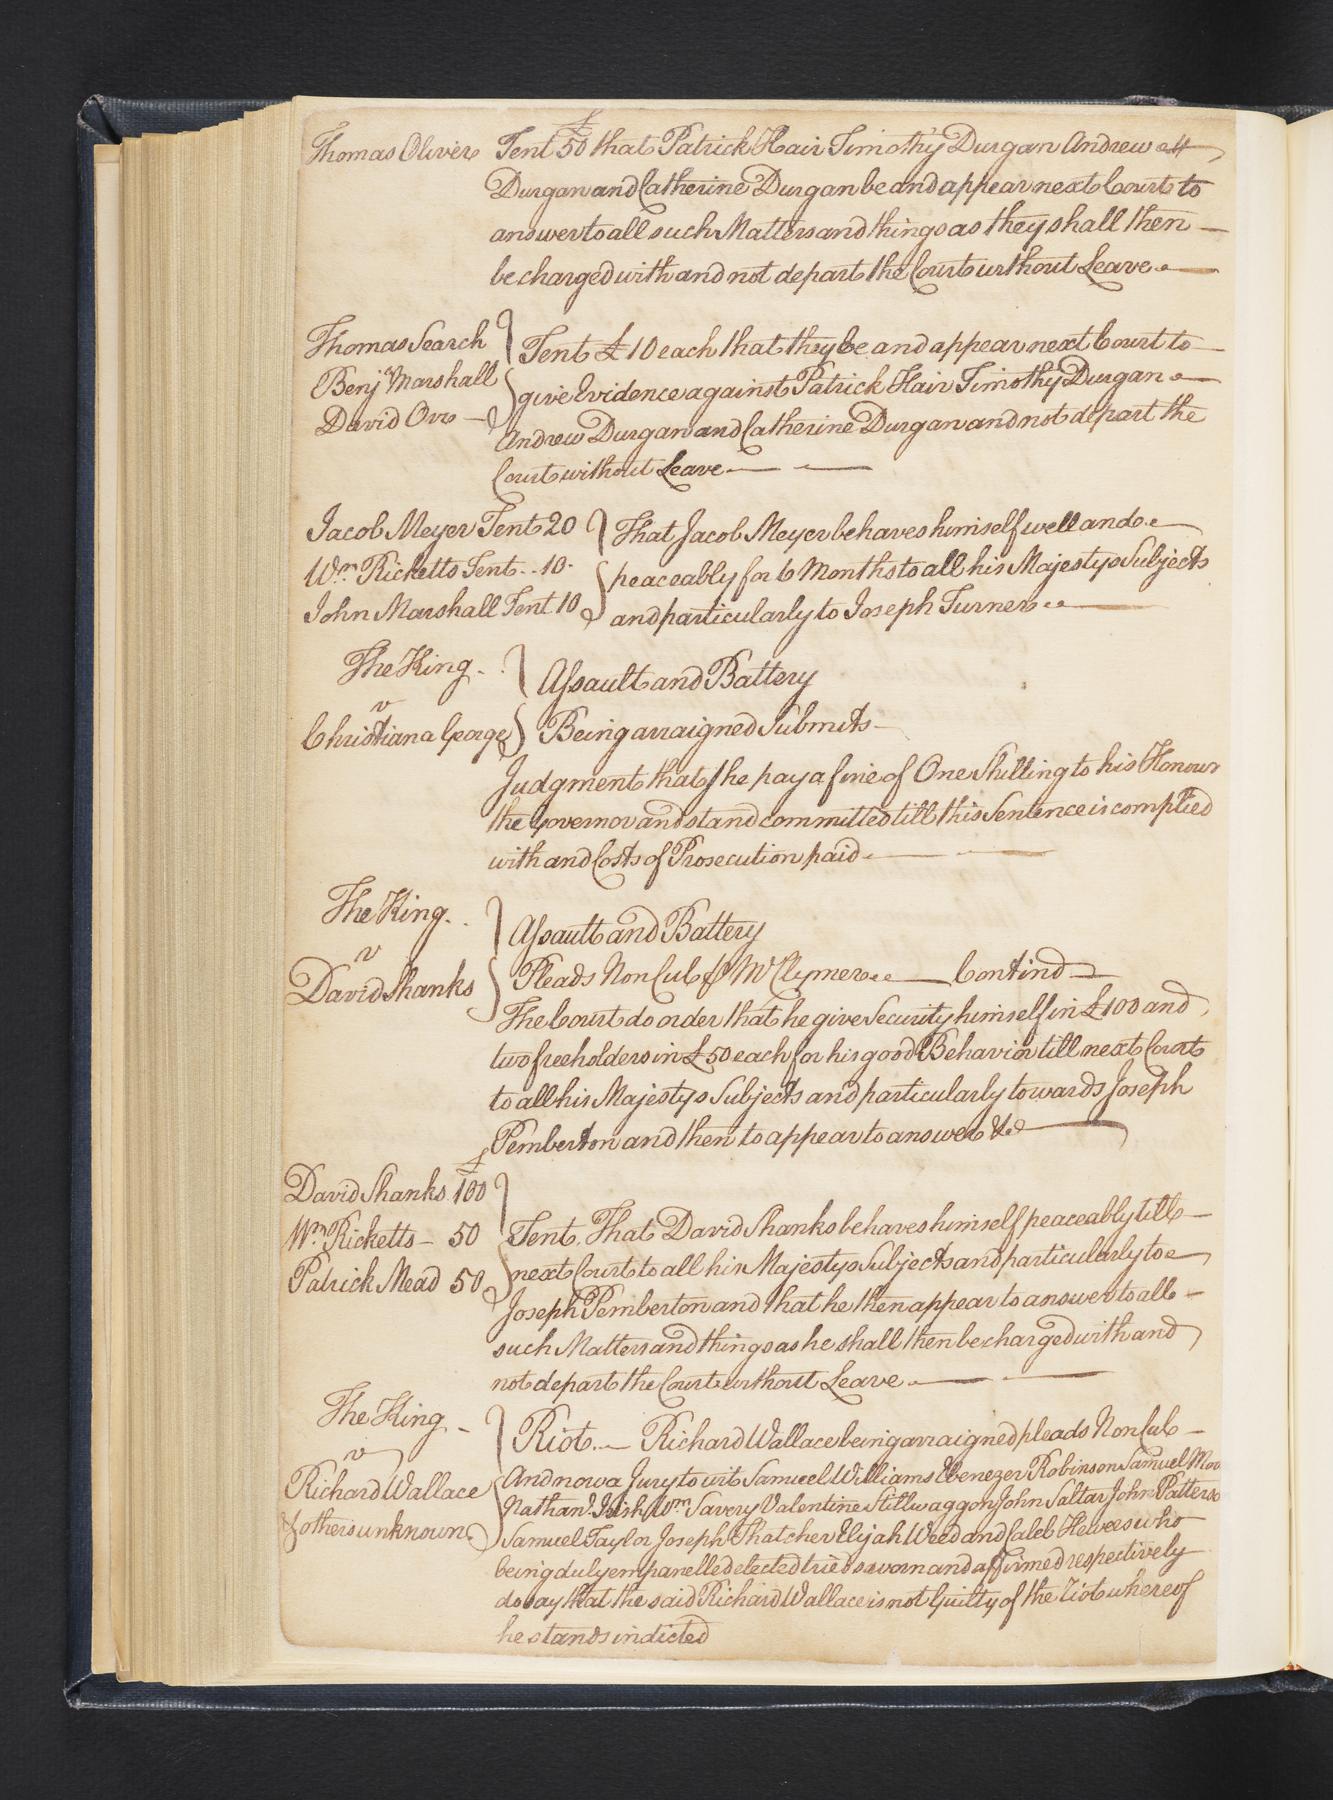 £
Thomas Oliver Tent 50 that Patrick Hair Timothy Durgan Andrew
Durgan and Catherine Durgan be and appear next Court to
answer to all such Matters and things as they shall then
be charged with and not depart the Court without Leave
Thomas Search
Benj.n Marshall
David Orr
Tent £10 each that they be and appear next Court to
give Evidence against Patrick Hair Timothy Durgan
Andrew Durgan and Catherine Durgan and not depart the
Court without Leave
Jacob Meyer Tent 20
Wm. Ricketts Tent 10
John Marshall Tent 10
That Jacob Meyer behaves himself well and
peaceably for 6 Months to all his Majestys Subjects
and particularly to Joseph Turner
The King
v
Christiana George
Assault and Battery
Being arraigned Submits
Judgment that she pay a fine of One Shilling to his Honour
the Governor and stand committed till this Sentence is complied
with and Costs of Prosecution paid
The King
v
David Shanks
Assault and Battery
Pleads Non Cul & Mr. Clymer Contind
The Court do order that he give Security himself in £100 and
two freeholders in £50 each for his good Behavior till next Court
to all his Majestys Subjects and particularly towards Joseph
Pemberton and then to appear to answer &c
£
David Shanks 100
Wm. Ricketts 50
Patrick Mead 50
Tent That David Shanks behaves himself peaceably till
next Court to all his Majestys Subjects and particularly to
Joseph Pemberton and that he then appear to answer to all
such Matters and things as he shall then be charged with and
not depart the Court without Leave
The King
v
Richard Wallace
& others unknown
Riot Richard Wallace being arraigned pleads Non Cul
And now a Jury to wit Samuel Williams Ebenezer Robinson Samuel
Nathan Wm. Savery Valentine Stillwaggon John Saltar John
Samuel Taylor Joseph Thatcher Elijah Weed and Caleb Hewes who
being duly empanelled elected tried sworn and affirmed respectively
do say that the said Richard Wallace is not Guilty of the Riot whereof
he stands indicted